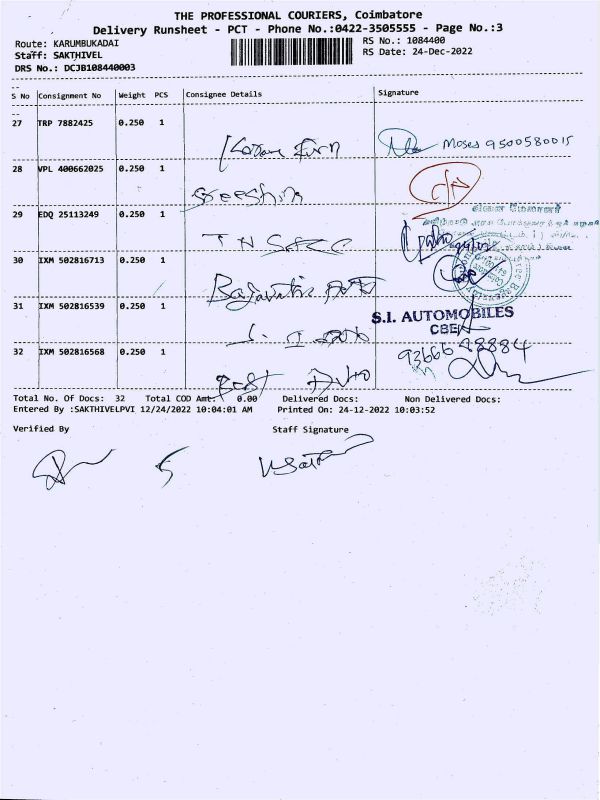 THE PROFESSIONAL COURIERS, Coimbatore
Delivery Runsheet - PCT - Phone No.:0422-3505555 - Page No.:3
Route: KARUMBUKADAI RS No.: 1084400
Staff: SAKTHIVEL RS Date: 24-Dec-2022
DRS No.: DCJB108440003
S No Consignment No Weight PCS Consignee Details Signature
27 TRP 7882425 0.250 1 Moses 9500580015
28 VPL 400662025 0.250 1
29 EDQ 25113249 0.250 1
30 IXM 502816713 0.250 1
31 IXM 502816539 0.250 1 S.I. AUTOMOBILES
CBE
32 IXM 502816568 0.250 1 Best Auto
Total No. Of Docs: 32 Total COD Amt: 0.00 Delivered Docs: Non Delivered Docs:
Entered By :SAKTHIVELPVI 12/24/2022 10:04:01 AM Printed On: 24-12-2022 10:03:52
Verified By Staff Signature